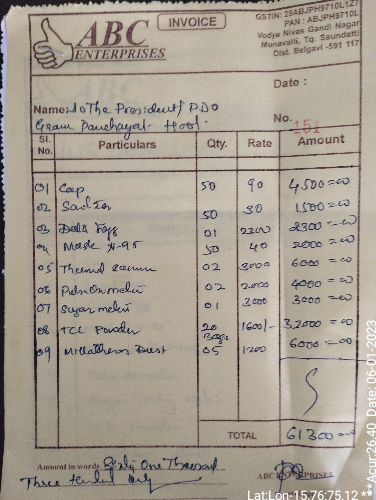 ABC
ENTERPRISES
INVOICE
GSTIN: 29ABJPH9710L1Z7
PAN : ABJPH9710L
Vodya Nivas Gandi Nagar
Munavalli, Tq. Saundatti
Dist. Belgavi -591 117
Date :
Name: To The President/PDO
Gram Panchayat- Hooli
No. 151
Sl. No. Particulars Qty. Rate Amount
01 Cap 50 90 4500=00
02 50 30 1500=00
03 01 2300 2300=00
04 Mask N-95 50 40 2000=00
05 Thermal 02 3000 6000=00
06 02 2000 4000=00
07 Sugar meter 01 3000 3000=00
08 TCL Powder 20 Bags 1600/- 32000=00
09 Dust 05 1200 6000=00
TOTAL 61300=00
Amount in words Sixty One Thousand
Three Hundred Only
ABC ENTERPRISES
Lat:Lon-15.76:75.12 **Acur:26.40 Date:06-01-2023